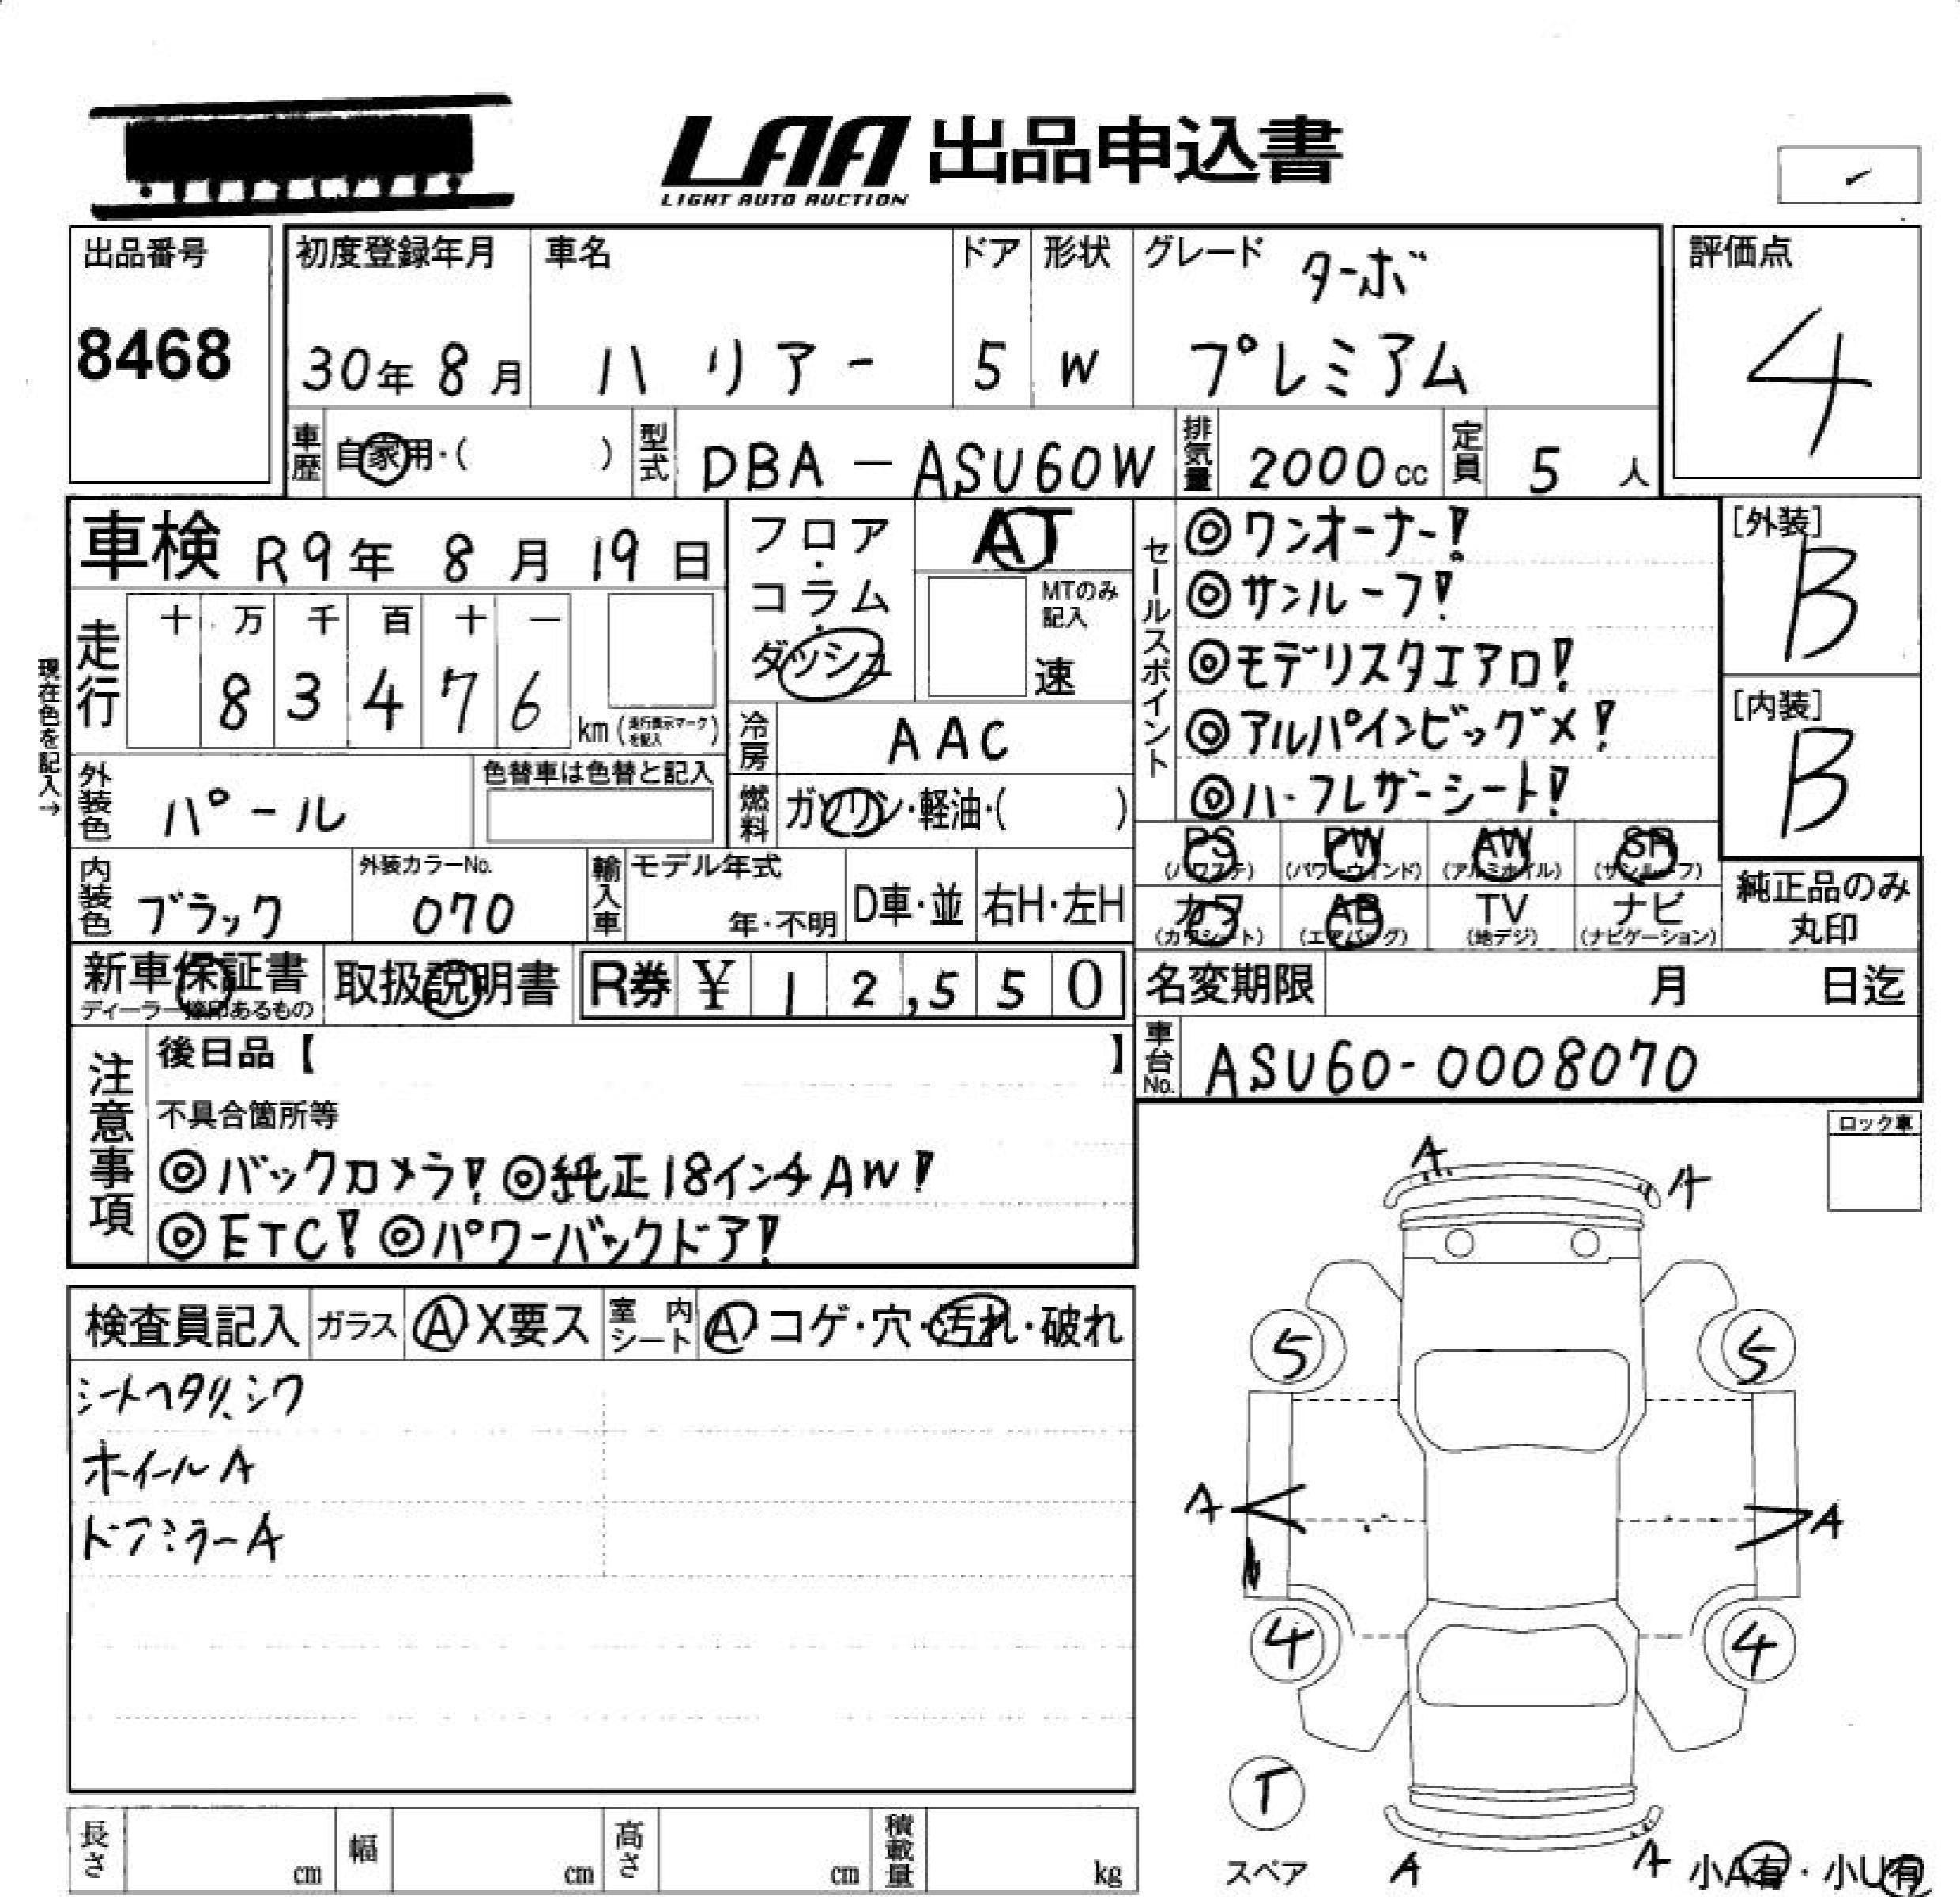 LAA 出品申込書
LIGHT AUTO AUCTION
出品番号
8468
初度登録年月
30年 8月
車名
ハリアー
ドア
5
形状
W
グレード
ターボ
プレミアム
評価点
4
車歴
自家用・( )
型式
DBA-ASU60W
排気量
2000cc
定員
5人
車検 R9年 8月 19日
フロア・コラム・ダッシュ
AT
MTのみ記入
速
セールスポイント
◎ワンオーナー!
◎サンルーフ!
◎モデリスタエアロ!
◎アルパインビッグメ!
◎ハーフレザーシート!
[外装]
B
[内装]
B
現在色を記入→
走行
十 万 千 百 十 一
8 3 4 7 6
km (走行表示マークを記入)
冷房
AAC
外装色
パール
色替車は色替と記入
燃料
ガソリン・軽油・( )
PS
(パワステ)
PW
(パワーウィンド)
AW
(アルミホイル)
SR
(サンルーフ)
内装色
ブラック
外装カラーNo.
070
輸入車
モデル年式
年・不明
D車・並
右H・左H
カワ
(カワシート)
AB
(エアバッグ)
TV
(地デジ)
ナビ
(ナビゲーション)
純正品のみ
丸印
新車保証書
ディーラー捺印あるもの
取扱説明書
R券 ¥ 12,550
名変期限 月 日迄
車台No.
ASU60-0008070
注意事項
後日品【 】
不具合箇所等
◎バックカメラ! ◎純正18インチAW!
◎ETC! ◎パワーバックドア!
ロック車
検査員記入
ガラス
A X要ス
室内シート
A・コゲ・穴・汚れ・破れ
シートヘタリ、シワ
ホイールA
ドアミラーA
A
A
5
5
A
A
4
4
T
スペア
A
A
小A有・小U有
長さ cm
幅 cm
高さ cm
積載量 kg